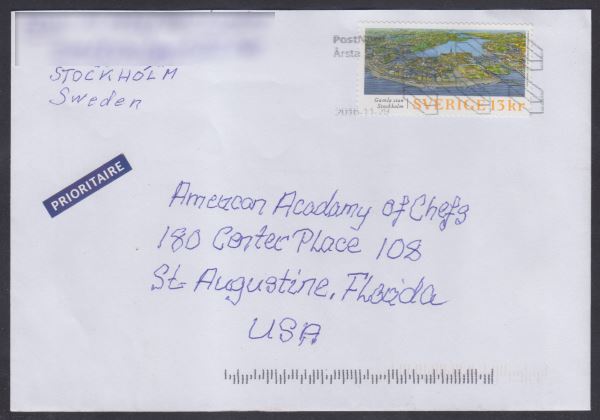 STOCKHÓLM
Sweden
PostNord
Årsta
2016-11-29
Gamla stan
Stockholm
SVERIGE 13 kr
PRIORITAIRE
American Acadamy of Chefs
180 Center Place 108
St. Augustine, Florida
USA